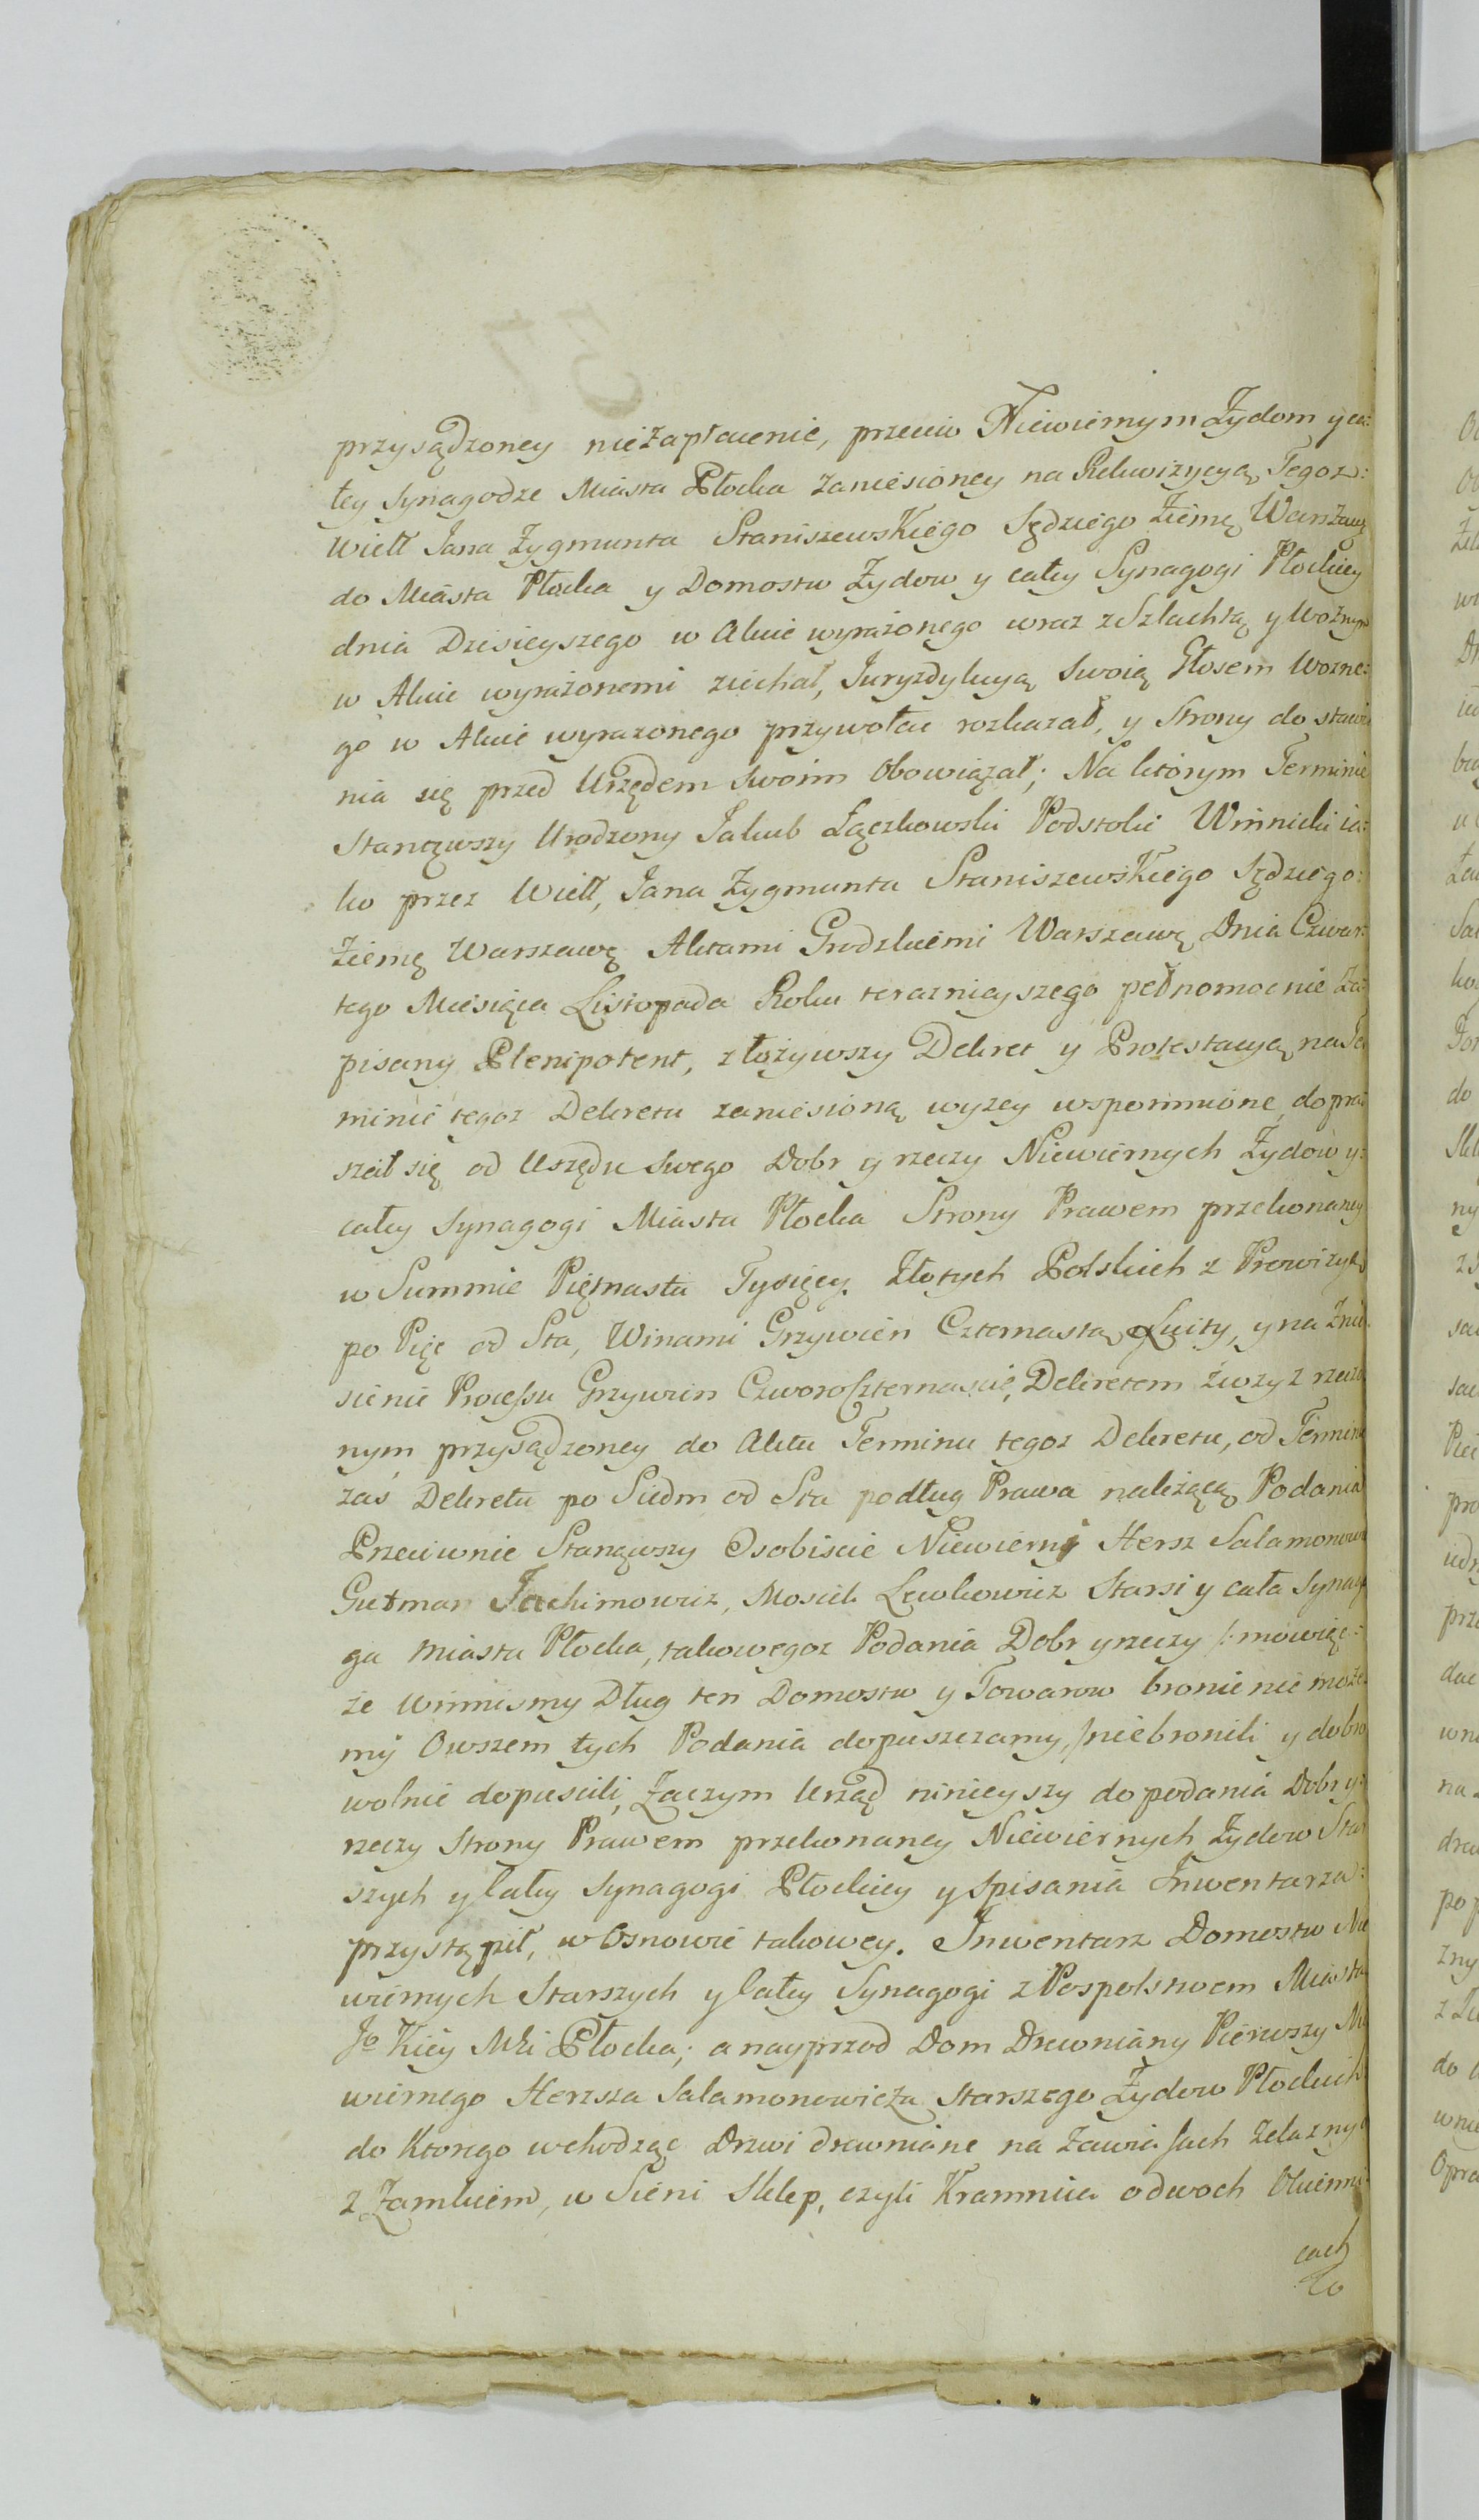 przysądzoney niezapłacenie, przeciw Niewiernym Żydom y ca:
łey Synagodze Miasta Płocka zaniesioney na Rekwizycyą Tegoz:
Wiell Jana Zygmunta Staniszewskiego Sędziego Ziemę Warszawę
do Miasta Płocka y Domostw Żydow y całey Synagogi Płockiey
dnia Dzisieyszego w Akcie wyrażonego wraz z Szlachtą y Woźnym
w Akcie wyrażonemi ziechał, Juryzdykcyą Swoią Głosem Wozne:
go w Akcie wyrazonego przywołać rozkazał, y Strony do stawie
nia się przed Urzędem Swoim Obowiązał; Na którym Terminie
Stanąwszy Urodzony Jakub Łączkowski Podstoli Winnicki ia:
ko przez Wiell, Jana Zygmunta Staniszewskiego Sędziego:
Ziemę Warszawę Aktami Grodzkiemi Warszawę Dnia Czwar:
tego Miesiąca Listopada Roku teraznieyszego pełnomocnie Za:
pisany Plenipotent, złożywszy Dekret y Protestacyą na Ter
minie tegoz Dekretu zaniesioną wyzey wspomnione, dopra:
szał się od Urzędu Swego Dobr y rzeczy Niewiernych Żydow y:
całey Synagogi Miasta Płocka Strony Prawem przekonaney
w Summie Piętnastu Tysięcy Złotych Polskich z Prowizyą
po Pięć od Sta, Winami Grzywien Czternastą Luity, y na Znie
sienie Processu Grzywien Czworo Czternaście, Dekretem zwyz rzeczo
nym przysądzoney do Aktu Terminu tegoz Dekretu, od Terminu
zaś Dekretu po Siedm od Sta podług Prawa należącą Podania
Przeciwnie Stanąwszy Osobiście Niewierny Hersz Salamonowicz
Gutman Jachimowicz, Mosiek Lewkowicz Starsi y cała Synago
ga Miasta Płocka, takowegoz Podania Dobr y rzeczy /: mowiąc:
że winnismy Dług ten Domostw y Towarow bronić nie może:
my Owszem tych Podania dopuszczamy, / niebronili y dobro
wolnie dopuscili, Zaczym Urząd ninieyszy do podania Dobr y:
rzeczy Strony Prawem przekonaney Niewiernych Żydow Star
szych y Całey Synagogi Płockiey y Spisania Inwentarza:
przystąpił, w Osnowie takowey. Inwentarz Domostw Nie
wiernych Starszych y Całey Synagogi z Pospolstwem Miasta
Jo Kiey Mci Płocka; a nayprzod Dom Drewniany Pierwszy Nie
wiernego Herszsa Salamonowicza Starszego Żydow Płockich
do Ktorego wchodząc Drzwi drewniane na Zawiasach żelaznych
z Zamkiem, w Sieni Sklep, czyli Kramnica o dwoch Okienni:
cach